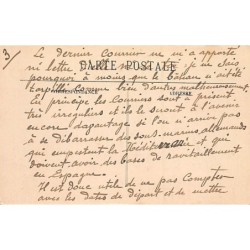 3)
Le dernier Courrier ne m'a apporté
ni lettre je ne sais
CARTE POSTALE
pourquoi à moins que le bateau n'ait été
torpillé comme bien d'autres malheureusement
CORRESPONDANCE ADRESSE
En principe les Courriers sont à présent
très irréguliers et ils le seront à l'avenir
encore davantage si l'on n'arrive pas
à se débarrasser des sous-marins allemands
qui empestent la Méditerranée et qui
doivent avoir des bases de ravitaillement
en Espagne
Il est donc utile de ne pas Compter
avec les dates de départ et de mettre